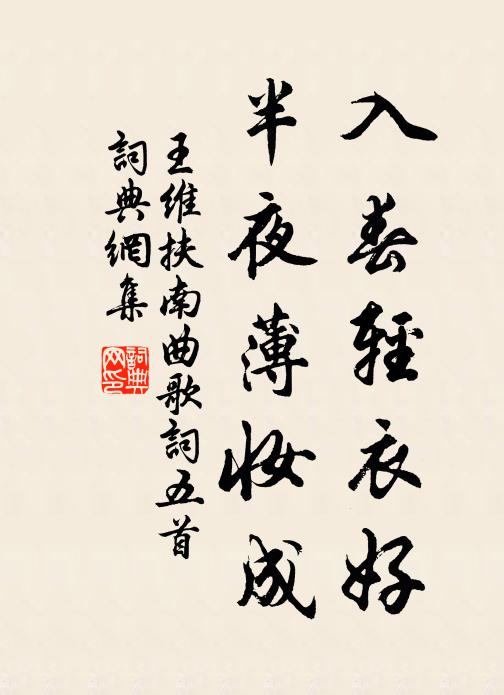 入春輕衣好
半夜薄妝成
王維扶南曲歌詞五首
詞典網集
詞典网印